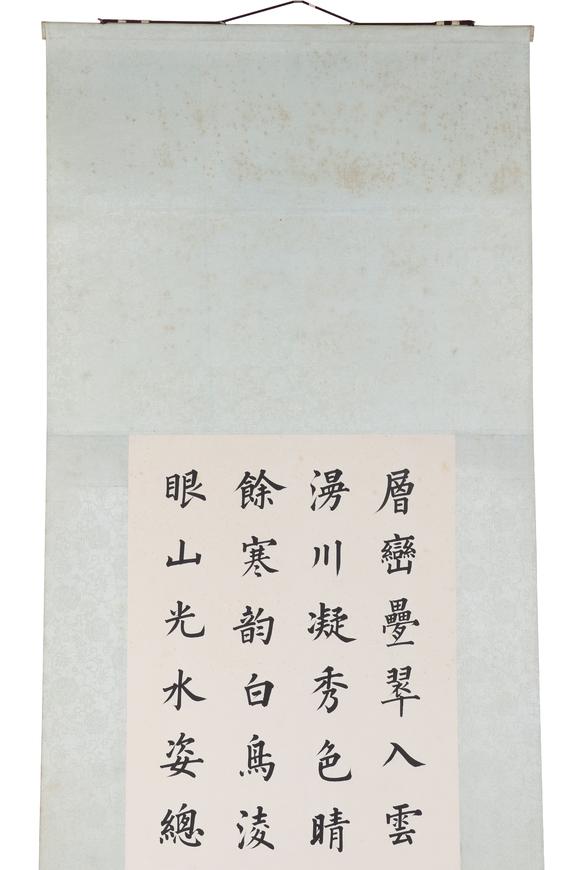 層巒疊翠入雲
漫川凝秀色晴
餘寒韵白鳥淩
眼山光水姿總